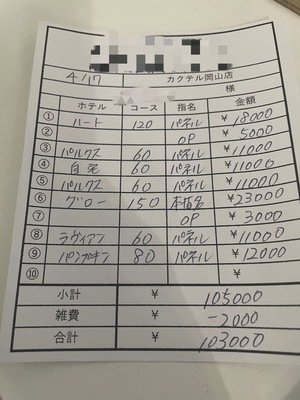 4/17 カクテル岡山店
様
ホテル コース 指名 金額
① ハート 120 パネル ¥18000
② OP ¥5000
③ パルクス 60 パネル ¥11000
④ 自宅 60 パネル ¥11000
⑤ パルクス 60 パネル ¥11000
⑥ グロー 150 本指名 ¥23000
⑦ OP ¥3000
⑧ ラヴィアン 60 パネル ¥11000
⑨ パンプキン 80 パネル ¥12000
⑩ ¥
小計 ¥ 105000
雑費 ¥ -2000
合計 ¥ 103000